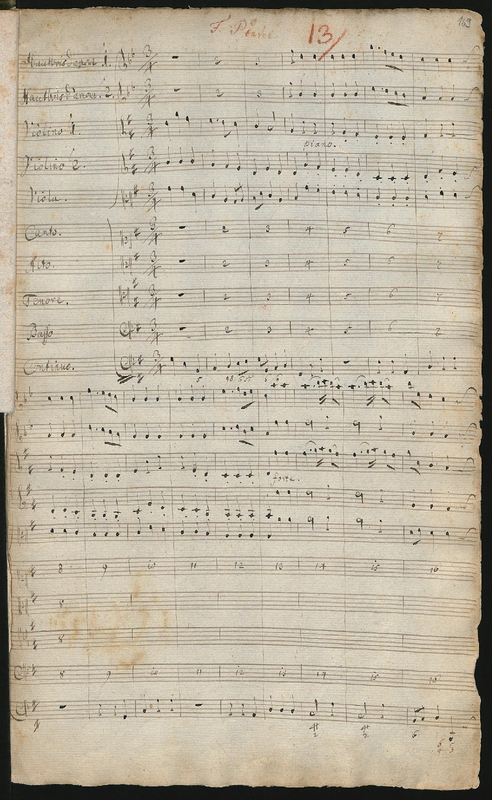 13
163
Hautbois d'amour 1.
Hautbois d'amour. 2.
Violino 1.
piano.
Violino 2.
Viola.
Canto. 2 3 4 5 6 7
Alto. 2 3 4 5 6 7
Tenore. 2 3 4 5 6 7
Basso 2 3 4 5 6 7
Continuo.
forte.
8 9 10 11 12 13 14 15 16
8
8
8 9 10 11 12 13 14 15 16